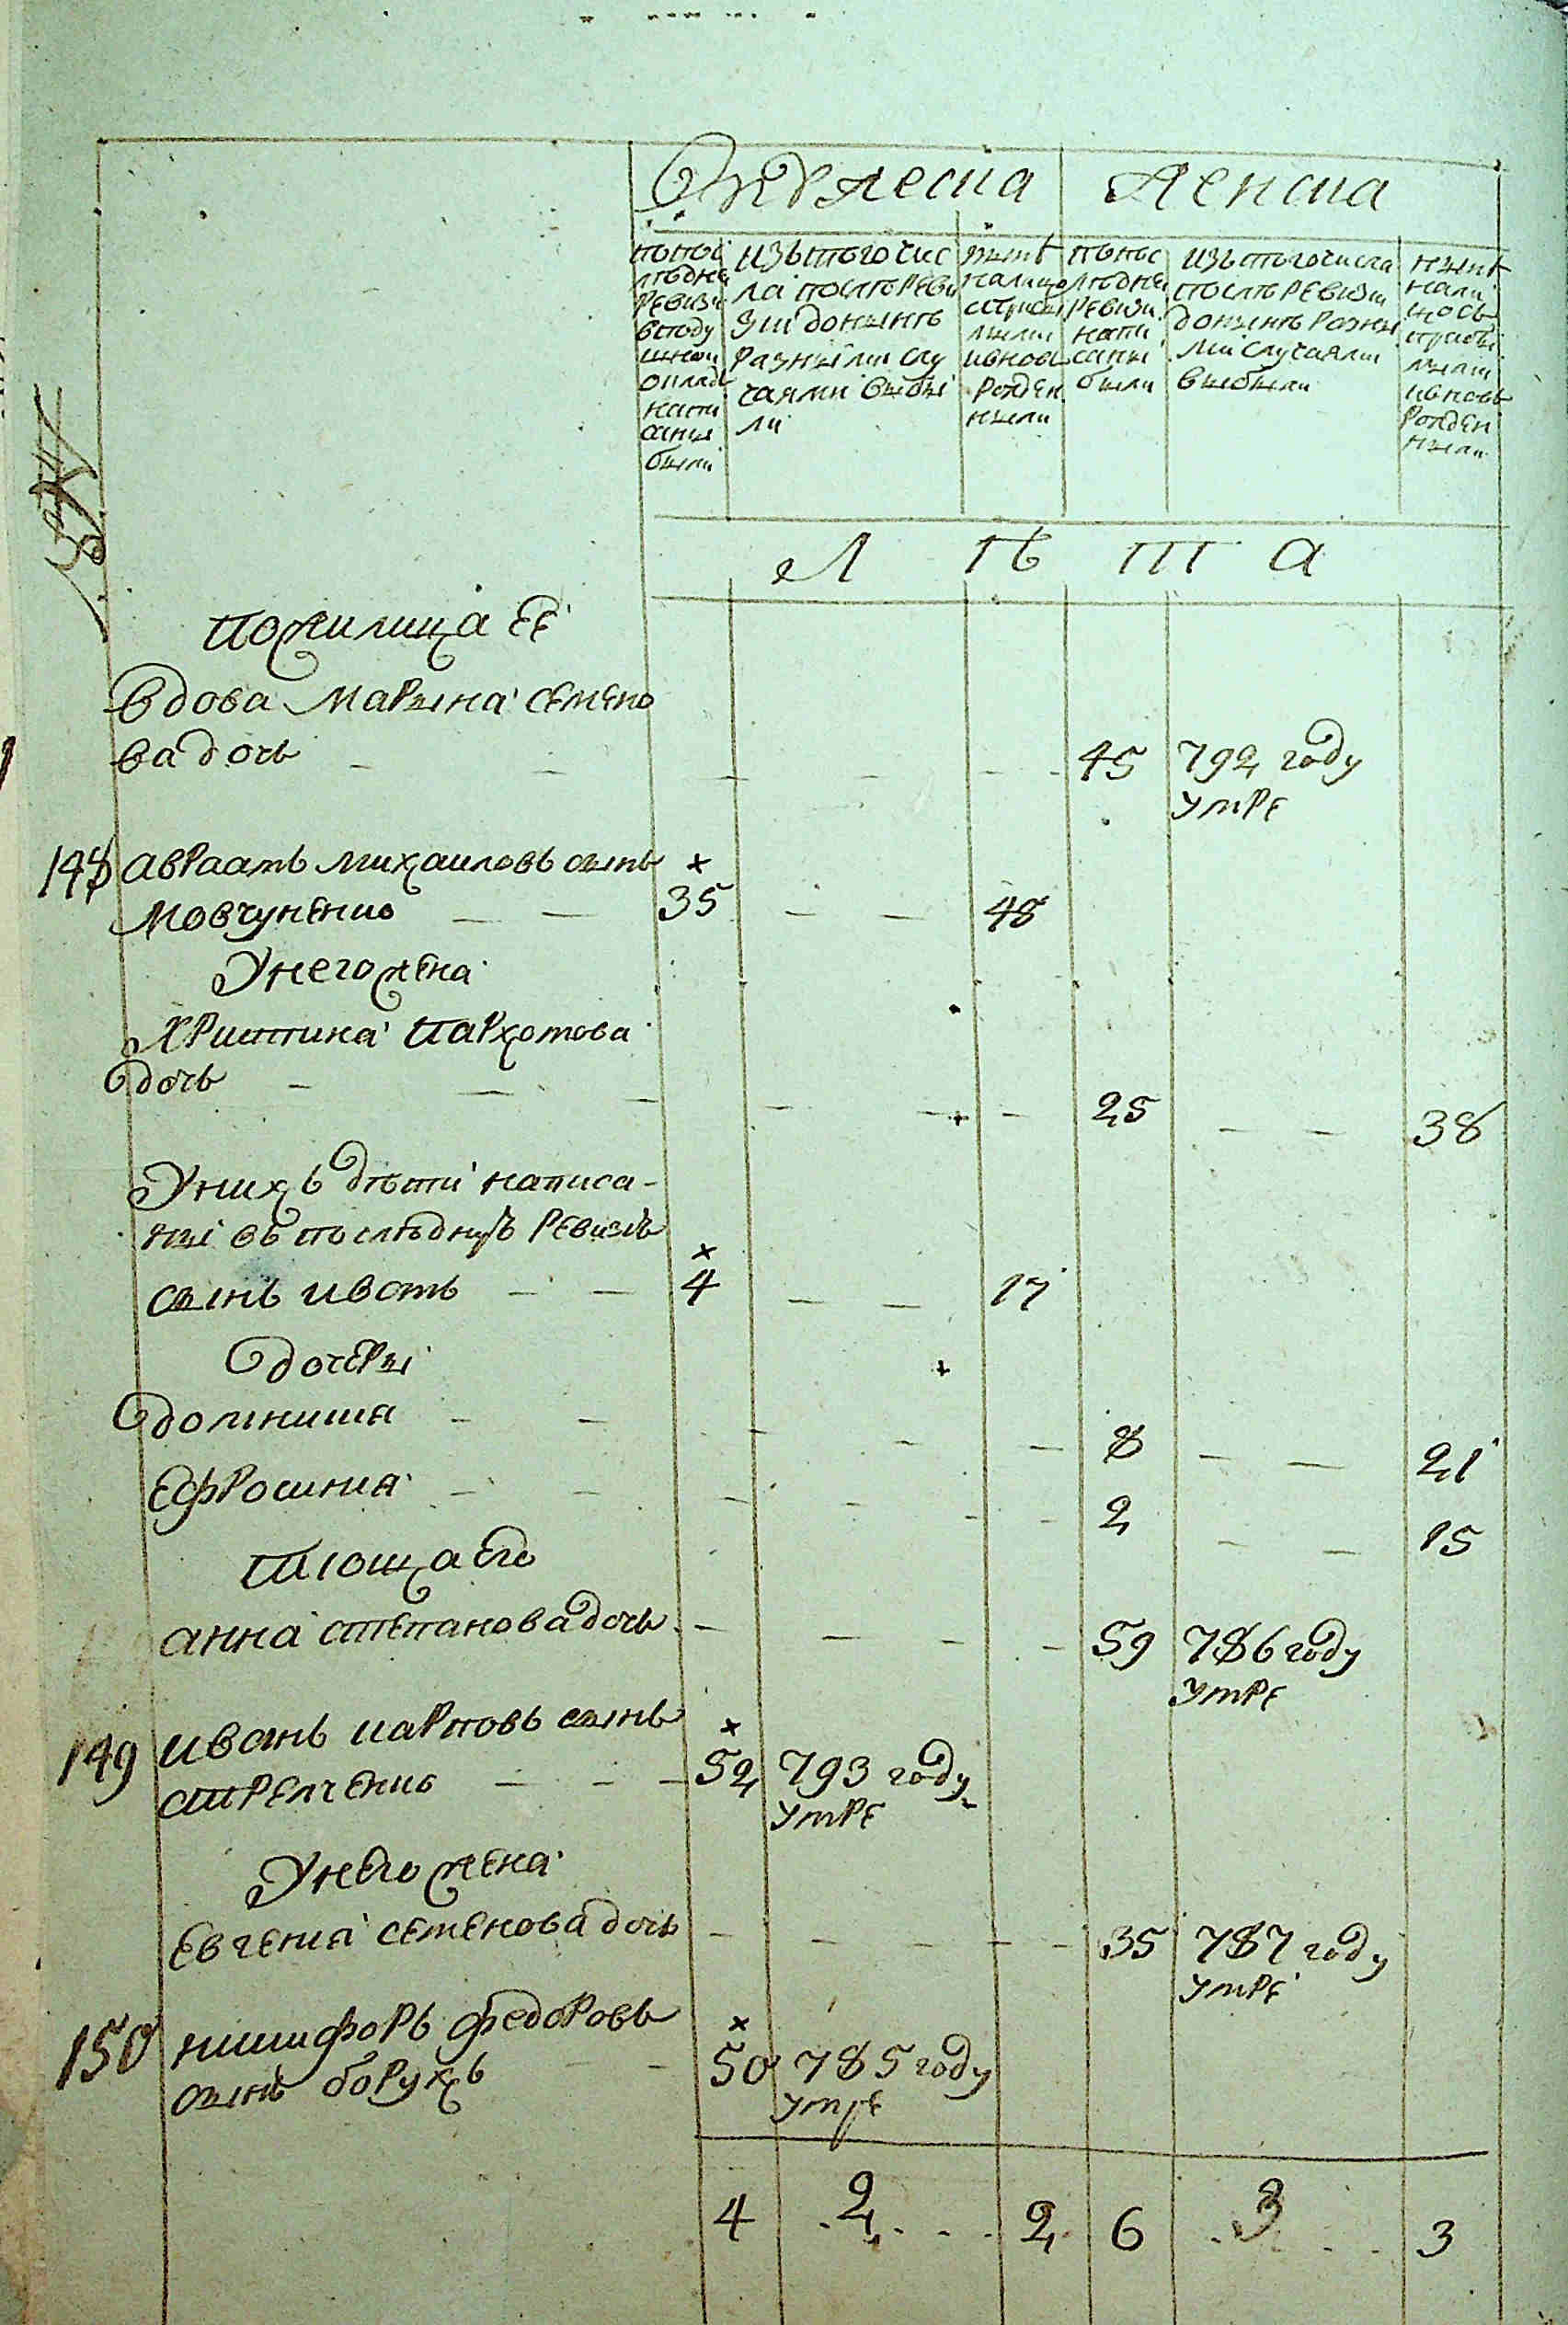 Мужеска Женска
по пос
ледней
ревизи
в поду
шной
оклад
напи
саны
были
изътого чис
ла после реви
зии доныне
разными слу
чаями выбы
ли
ныне
налицо
с прибы
лыми
и вновь
рожден
ными
по пос
ледней
ревизи
напи
саны
были
изътого числа
после ревизии
доныне разны
ми случаями
выбыли
ныне
нали
цо съ
прибы
лыми
и вновь
рожден
ными
Л ѣ т а
вдова Марына семено
ва дочь 45 792 году
умре
148 авраамъ михаиловъ сынъ
Мовчуненко 35 48
Унего жена
Христина Пархомова
дочь 25 38
Унихъ дѣти написа-
ныі въ последную ревизию
сынъ иванъ 4 17
дочеры
домникия 8 21
ефросиния 2 15
Тюща его
анна степанова дочь 59 786 году
умре
149 иванъ карповъ сынъ
стрелченко 52 793 году
умре
Унего жена
евгения семенова дочь 35 787 году
умре
150 никифоръ федоровъ
сынъ борухъ 50 785 году
умре
4 2 2 6 3 3